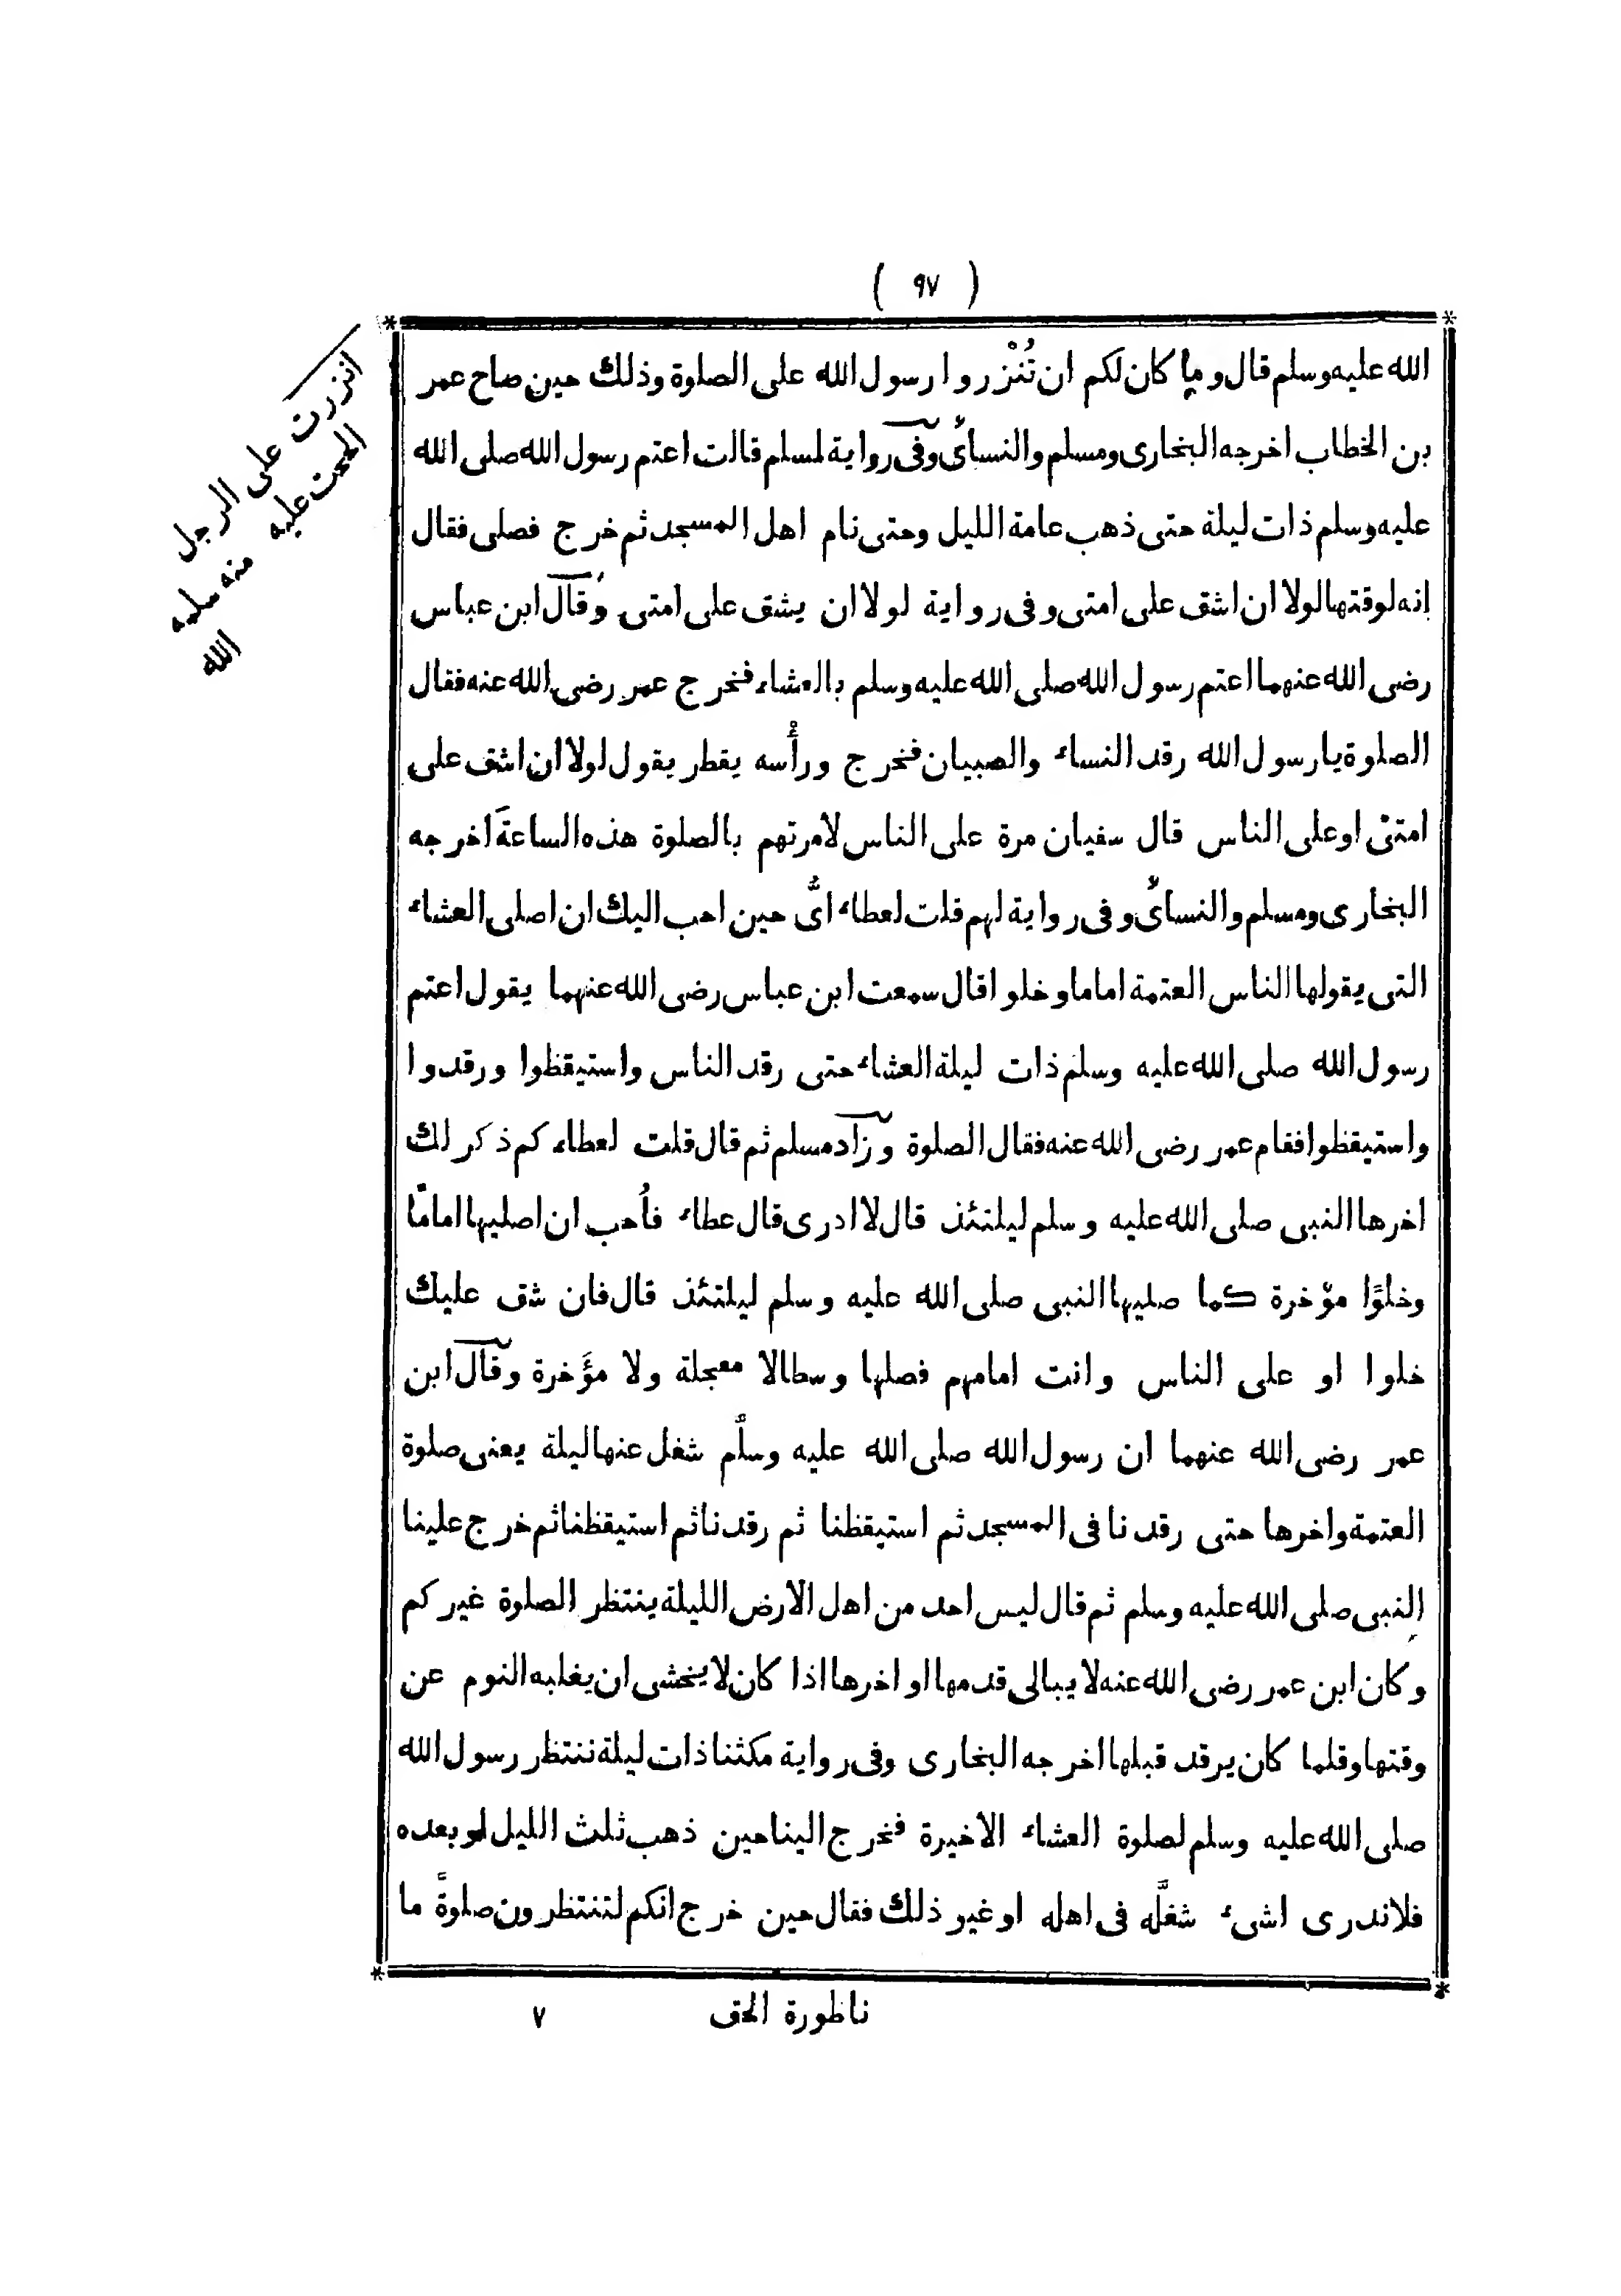 ( ٩٧ )
الله عليه وسلم قال وما كان لكم ان تُنْزِروا رسول الله على الصلوة وذلك حين صاح عمر
بن الخطاب اخرجه البخارى ومسلم والنسائى وفى رواية لمسلم قالت اعتم رسول الله صلى الله
عليه وسلم ذات ليلة حتى ذهب عامة الليل وحتى نام اهل المسجد ثم خرج فصلى فقال
انه لوقتها لولا ان اشق على امتى وفى رواية لولا ان يشق على امتى وقال ابن عباس
رضى الله عنهما اعتم رسول الله صلى الله عليه وسلم بالعشاء فخرج عمر رضى الله عنه فقال
الصلوة يا رسول الله رقد النساء والصبيان فخرج ورأسه يقطر يقول لولا ان اشق على
امتى او على الناس قال سفيان مرة على الناس لامرتهم بالصلوة هذه الساعة اخرجه
البخارى ومسلم والنسائى وفى رواية لهم قلت لعطاء اىُّ حين احب اليك ان اصلى العشاء
التى يقولها الناس العتمة اماما وخلوا قال سمعت ابن عباس رضى الله عنهما يقول اعتم
رسول الله صلى الله عليه وسلم ذات ليلة العشاء حتى رقد الناس واستيقظوا ورقدوا
واستيقظوا فقام عمر رضى الله عنه فقال الصلوة وزاد مسلم ثم قال قلت لعطاء كم ذكر لك
اخرها النبى صلى الله عليه وسلم ليلتئذ قال لا ادرى قال عطاء فأحب ان اصليها امامًا
وخلوًا مؤخرة كما صليها النبى صلى الله عليه وسلم ليلتئذ قال فان شق عليك
خلوا او على الناس وانت امامهم فصلها وسطا لا معجلة ولا مؤَخرة وقال ابن
عمر رضى الله عنهما ان رسول الله صلى الله عليه وسلَّم شغل عنها ليلة يعنى صلوة
العتمة واخرها حتى رقدنا فى المسجد ثم استيقظنا ثم رقدنا ثم استيقظنا ثم خرج علينا
النبى صلى الله عليه وسلم ثم قال ليس احد من اهل الارض الليلة ينتظر الصلوة غيركم
وكان ابن عمر رضى الله عنه لا يبالى قدمها او اخرها اذا كان لا يخشى ان يغلبه النوم عن
وقتها وقلما كان يرقد قبلها اخرجه البخارى وفى رواية مكثنا ذات ليلة ننتظر رسول الله
صلى الله عليه وسلم لصلوة العشاء الاخيرة فخرج الينا حين ذهب ثلث الليل او بعده
فلا ندرى اشىء شغلَّه فى اهله او غير ذلك فقال حين خرج انكم لتنتظرون صلوةً ما
ناظورة الحق ٧
انزرت على الرجل
الححت عليه
منه سلمه
الله